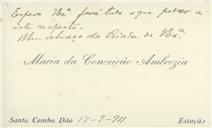 Espero V. Exª fará tudo o que puder a
este respeito.
Um abraço da Criada de V. Exª
Maria da Conceição Ambrozia
Santa Comba Dão 17-9-911 Estação